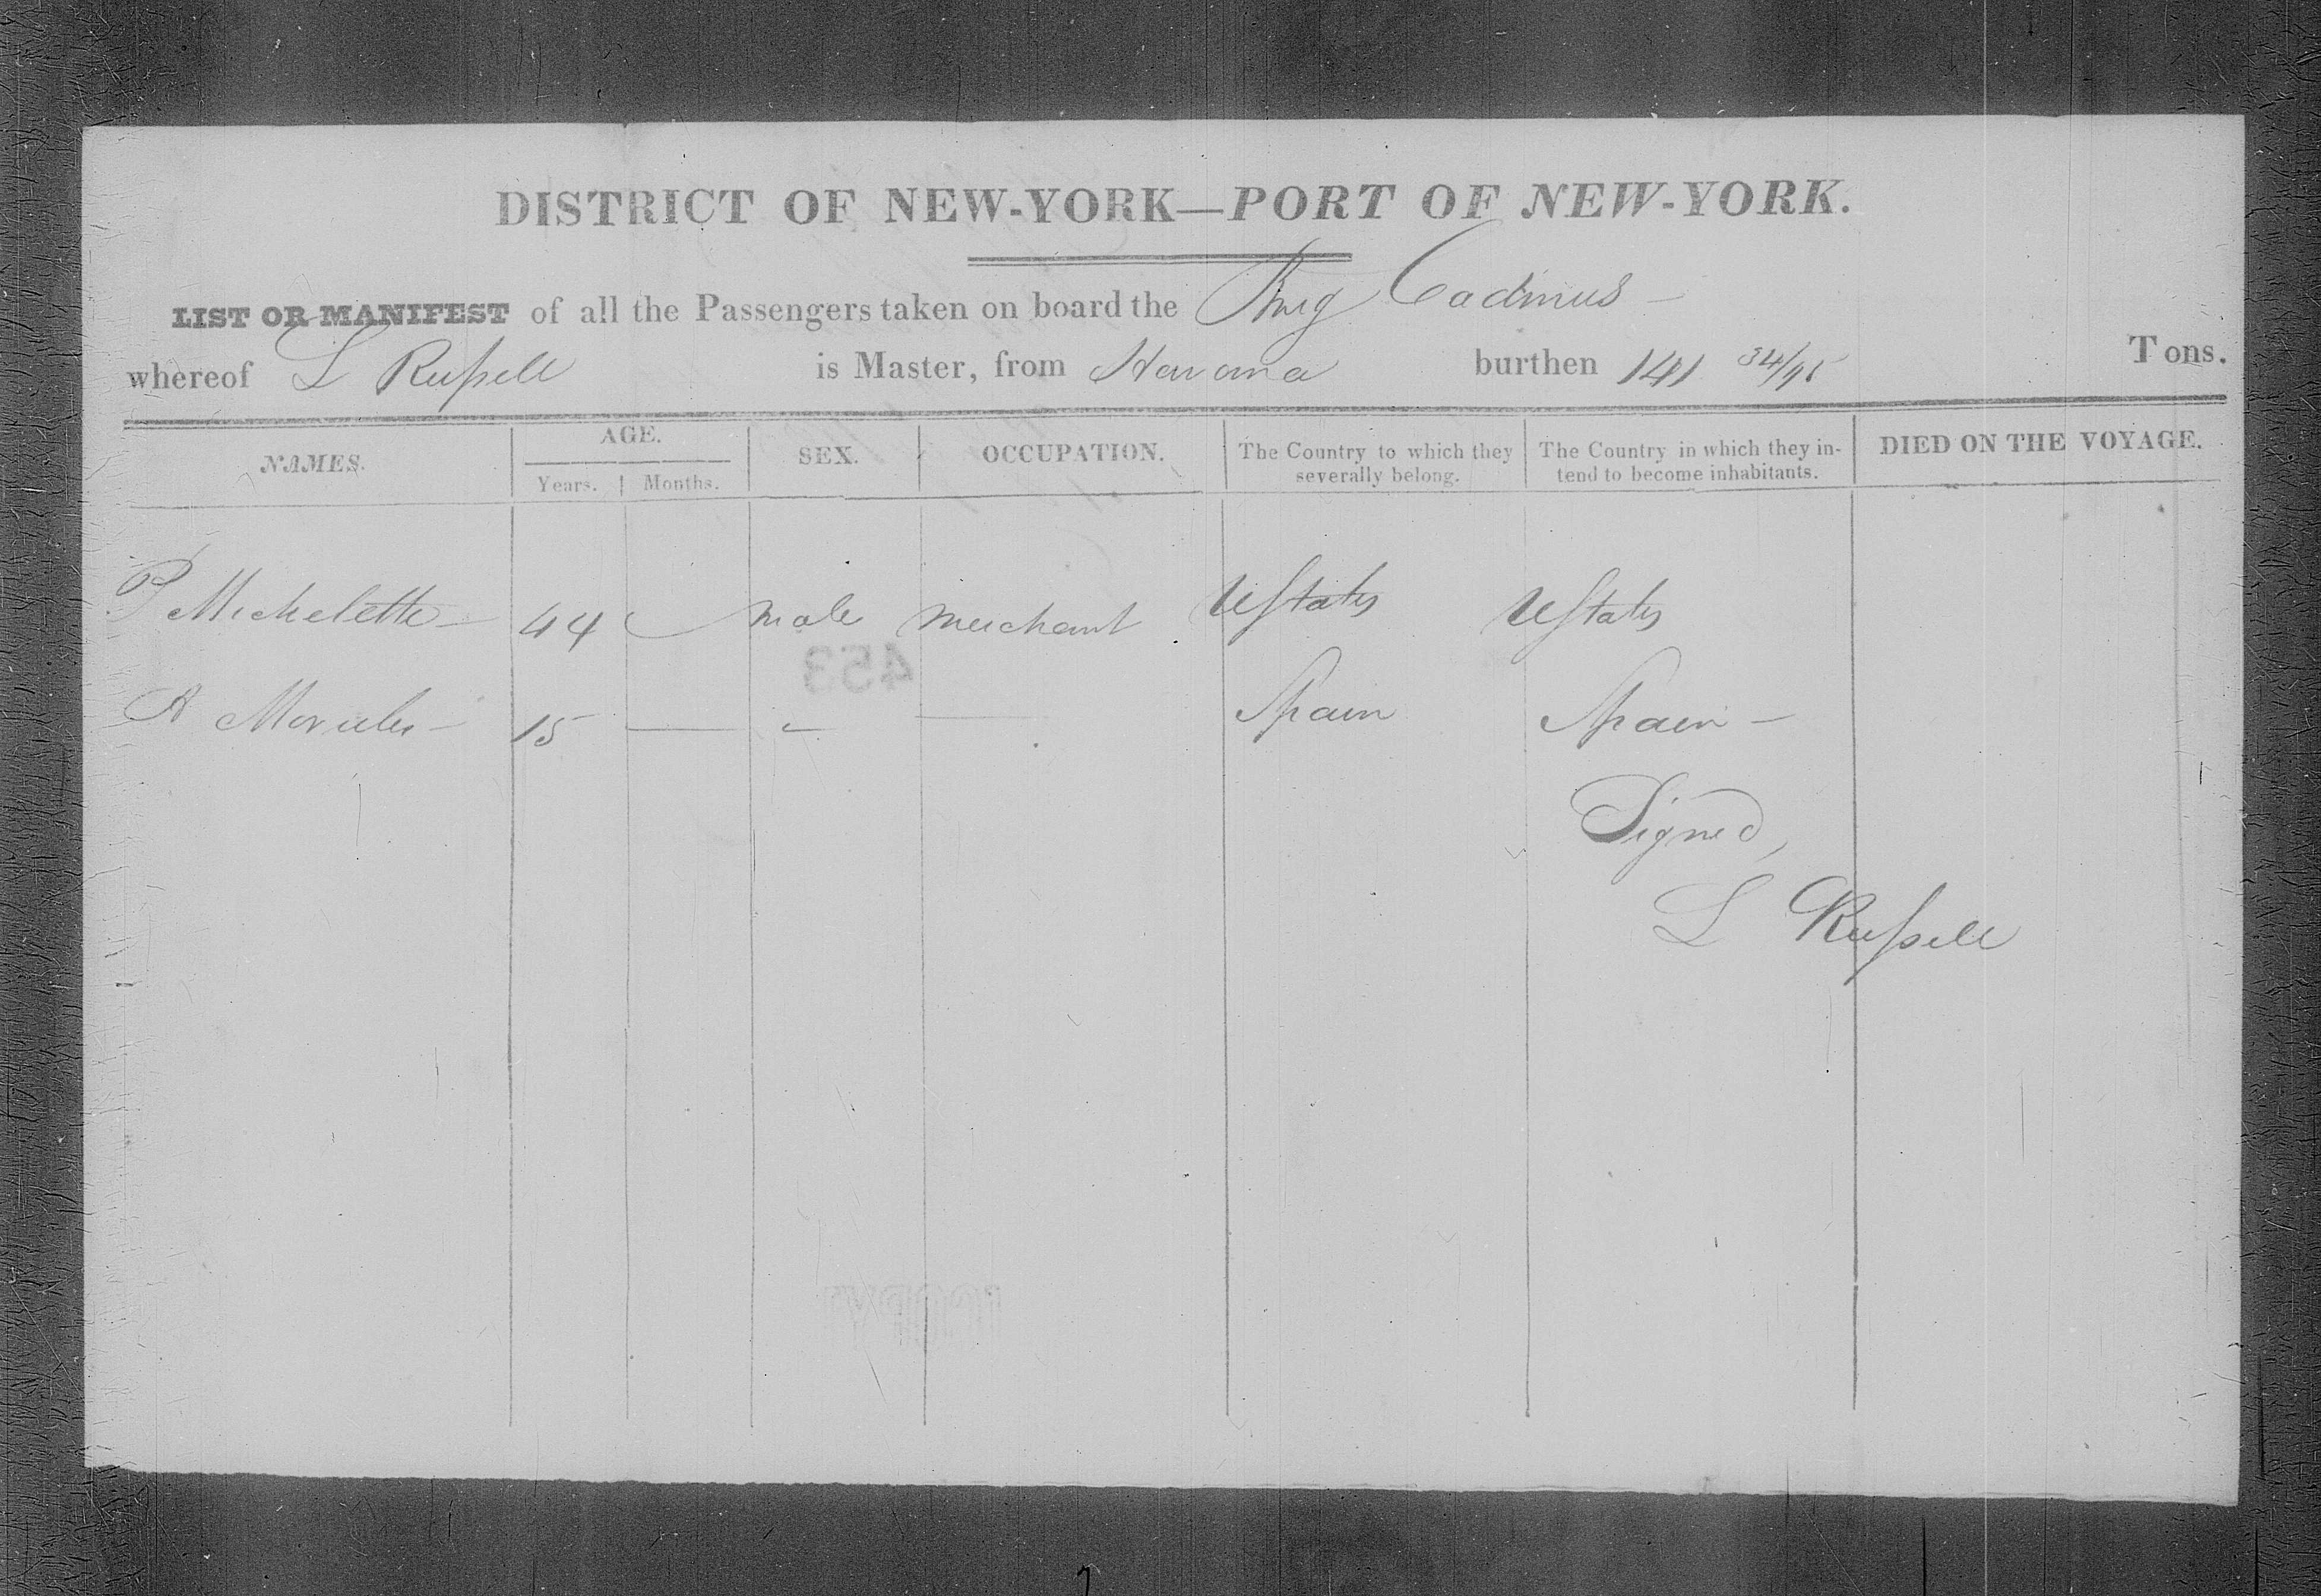 DISTRICT OF NEW-YORK—PORT OF NEW-YORK.
LIST OR MANIFEST of all the Passengers taken on board the Brig Cadmus —
whereof L Russell is Master, from Havana burthen 141 34/95 Tons.
NAMES. AGE. SEX. OCCUPATION. The Country to which they severally belong. The Country in which they in-tend to become inhabitants. DIED ON THE VOYAGE.
Years. Months.
P Michelette 44 male merchant UStates UStates
A Morales — 15 — — — Spain Spain —
Signed,
L Russell
453